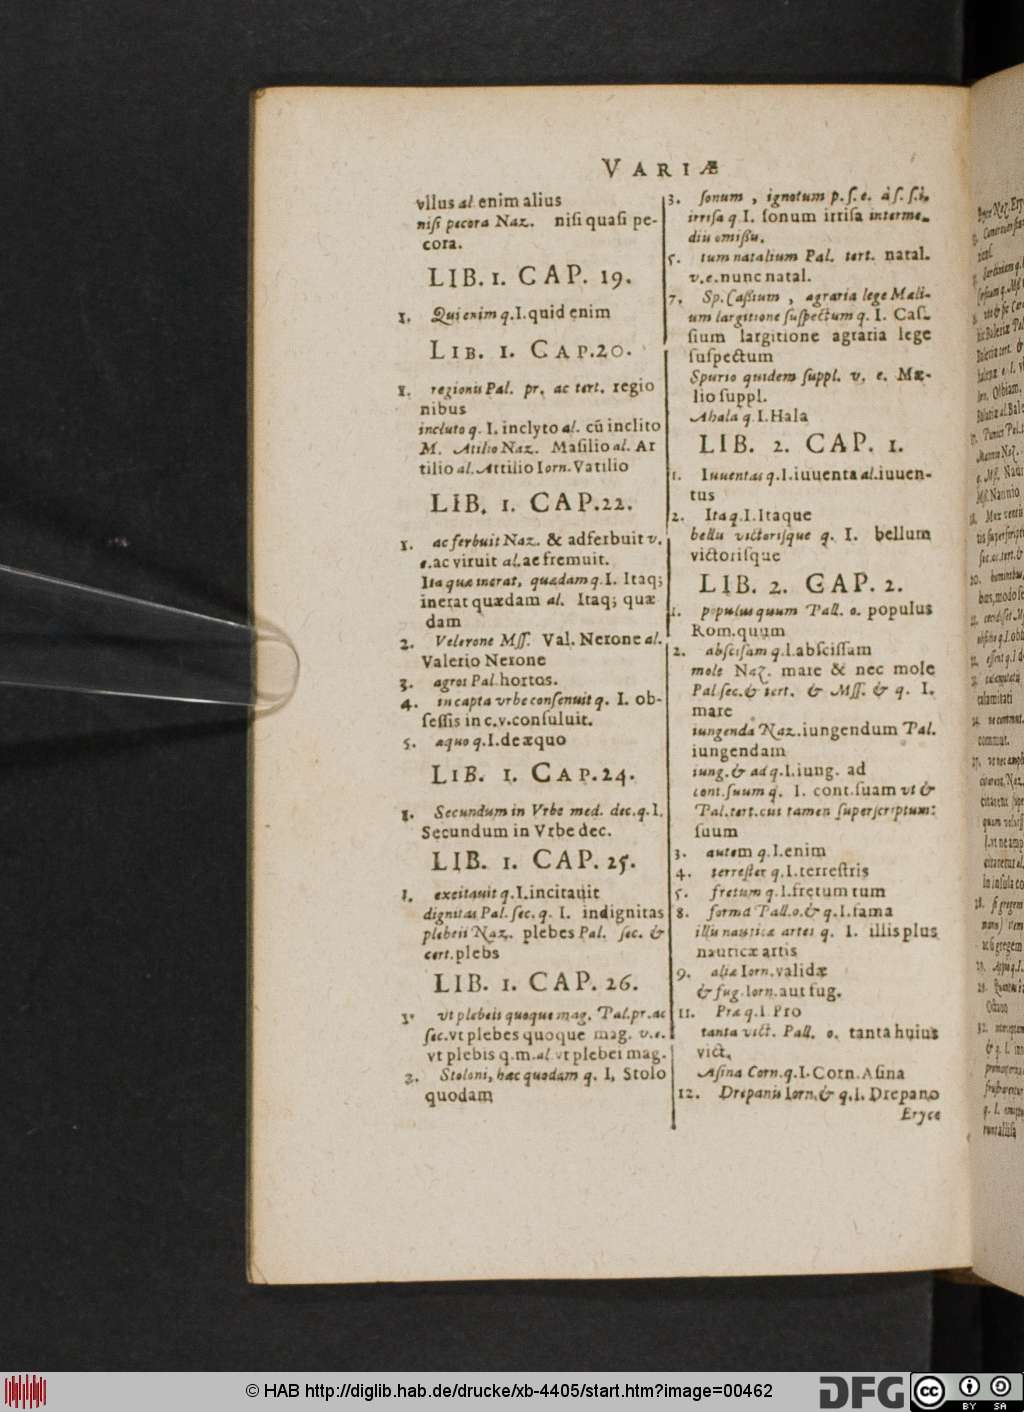 VARIÆ
vllus al enim alius
nisi pecora Naz. nisi quasi pe-
cora.
LIB. 1. CAP. 19.
1. Qui enim q. I. quid enim
LIB. 1. CAP. 20.
1. regionis Pal. pr. ac tert. regio
nibus
incluto q. I. inclyto al. cū inclito
M. Atilio Naz. Masilio al. Ar
tilio al. Attilio Iorn. Vatilio
LIB. 1. CAP. 22.
1. ac ferbuit Naz. & adferbuit v.
e. ac viruit al. ac fremuit.
Ita quæ inerat, quædam q. I. Itaq;
inerat quædam al. Itaq; quæ
dam
2. Velerone Mss. Val. Nerone al.
Valerio Nerone
3. agros Pal. hortos.
4. in capta vrbe consenuit q. I. ob-
sessis in c. v. consuluit.
5. aquo q. I. de æquo
LIB. 1. CAP. 24.
1. Secundum in Vrbe med. dec. q. I.
Secundum in Vrbe dec.
LIB. 1. CAP. 25.
1. excitauit q. I. incitauit
dignitas Pal. sec. q. I. indignitas
plebeii Naz. plebes Pal. sec. &
tert. plebs
LIB. 1. CAP. 26.
1. vt plebeis quoque mag. Pal. pr. ac
sec. vt plebes quoque mag. v. e.
vt plebis q. m. al. vt plebei mag.
2. Stoloni, hac quodam q. I. Stolo
quodam
3. sonum, ignotum p. s. e. à s. s. i.
irrisa q. I. sonum irrisa interme-
diis omissis.
5. tum natalium Pal. tert. natal.
v. e. nunc natal.
7. Sp. Cassium, agraria lege Mali-
um largitione suspectum q. I. Cas-
sium largitione agraria lege
suspectum
Spurio quidem suppl. v. e. Mæ-
lio suppl.
Ahala q. I. Hala
LIB. 2. CAP. 1.
1. Iuuentas q. I. iuuenta al. iuuen-
tus
2. Ita q. I. Itaque
bellu victorisque q. I. bellum
victorisque
LIB. 2. CAP. 2.
1. populus quum Pall. o. populus
Rom. quum
2. abscisam q. I. abscissam
mole Naz. mare & nec mole
Pal sec. & tert. & Mss. & q. I.
mare
iungenda Naz. iungendum Pal.
iungendam
iung. & ad q. I. iung. ad
cont. suum q. I. cont. suam vt &
Pal. tert. cui tamen superscriptum:
suum
3. autem q. I. enim
4. terrester q. I. terrestris
5. fretum q. I. fretum tum
8. forma Pall. o. & q. I. fama
illis nauticæ artes q. I. illis plus
nauticæ artis
9. aliæ Iorn. validæ
& fug. Iorn. aut fug.
11. Præ q. I. Pro
tanta vict. Pall. o. tanta huius
vict.
Asina Corn. q. I. Corn. Asina
12. Drepanis Iorn. & q. I. Drepano
Eryce
© HAB http://diglib.hab.de/drucke/xb-4405/start.htm?image=00462
DFG
cc BY SA